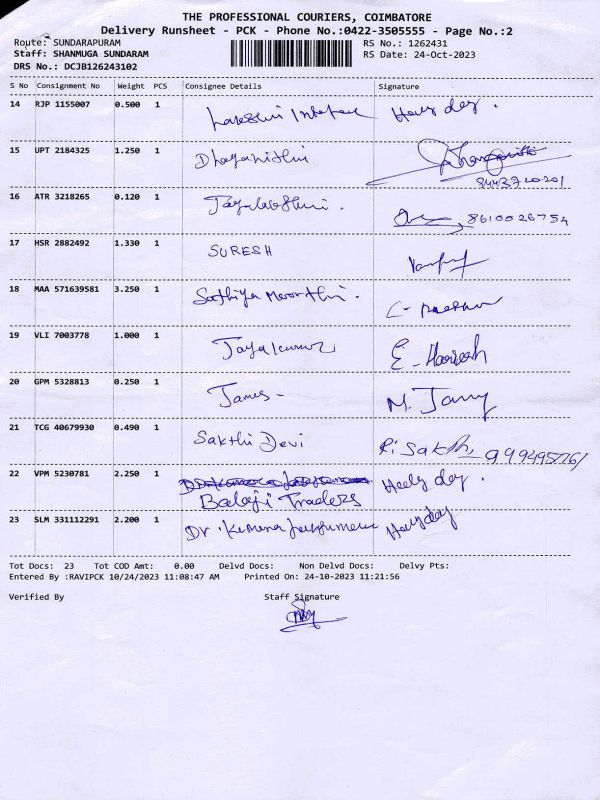 THE PROFESSIONAL COURIERS, COIMBATORE
Delivery Runsheet - PCK - Phone No.:0422-3505555 - Page No.:2
Route: SUNDARAPURAM RS No.: 1262431
Staff: SHANMUGA SUNDARAM RS Date: 24-Oct-2023
DRS No.: DCJB126243102
S No Consignment No Weight PCS Consignee Details Signature
14 RJP 1155007 0.500 1
15 UPT 2184325 1.250 1 Dhayanithi
8443720201
16 ATR 3218265 0.120 1 8610026754
17 HSR 2882492 1.330 1 SURESH
18 MAA 571639581 3.250 1 Sathiya Moorthi.
19 VLI 7003778 1.000 1 Jayakumar E. Harish
20 GPM 5328813 0.250 1 James - M. Jamy
21 TCG 40679930 0.490 1 Sakthi Devi R. Sakthi
22 VPM 5230781 2.250 1
Balaji Traders
23 SLM 331112291 2.200 1 Dr.
Tot Docs: 23 Tot COD Amt: 0.00 Delvd Docs: Non Delvd Docs: Delvy Pts:
Entered By :RAVIPCK 10/24/2023 11:08:47 AM Printed On: 24-10-2023 11:21:56
Verified By Staff Signature